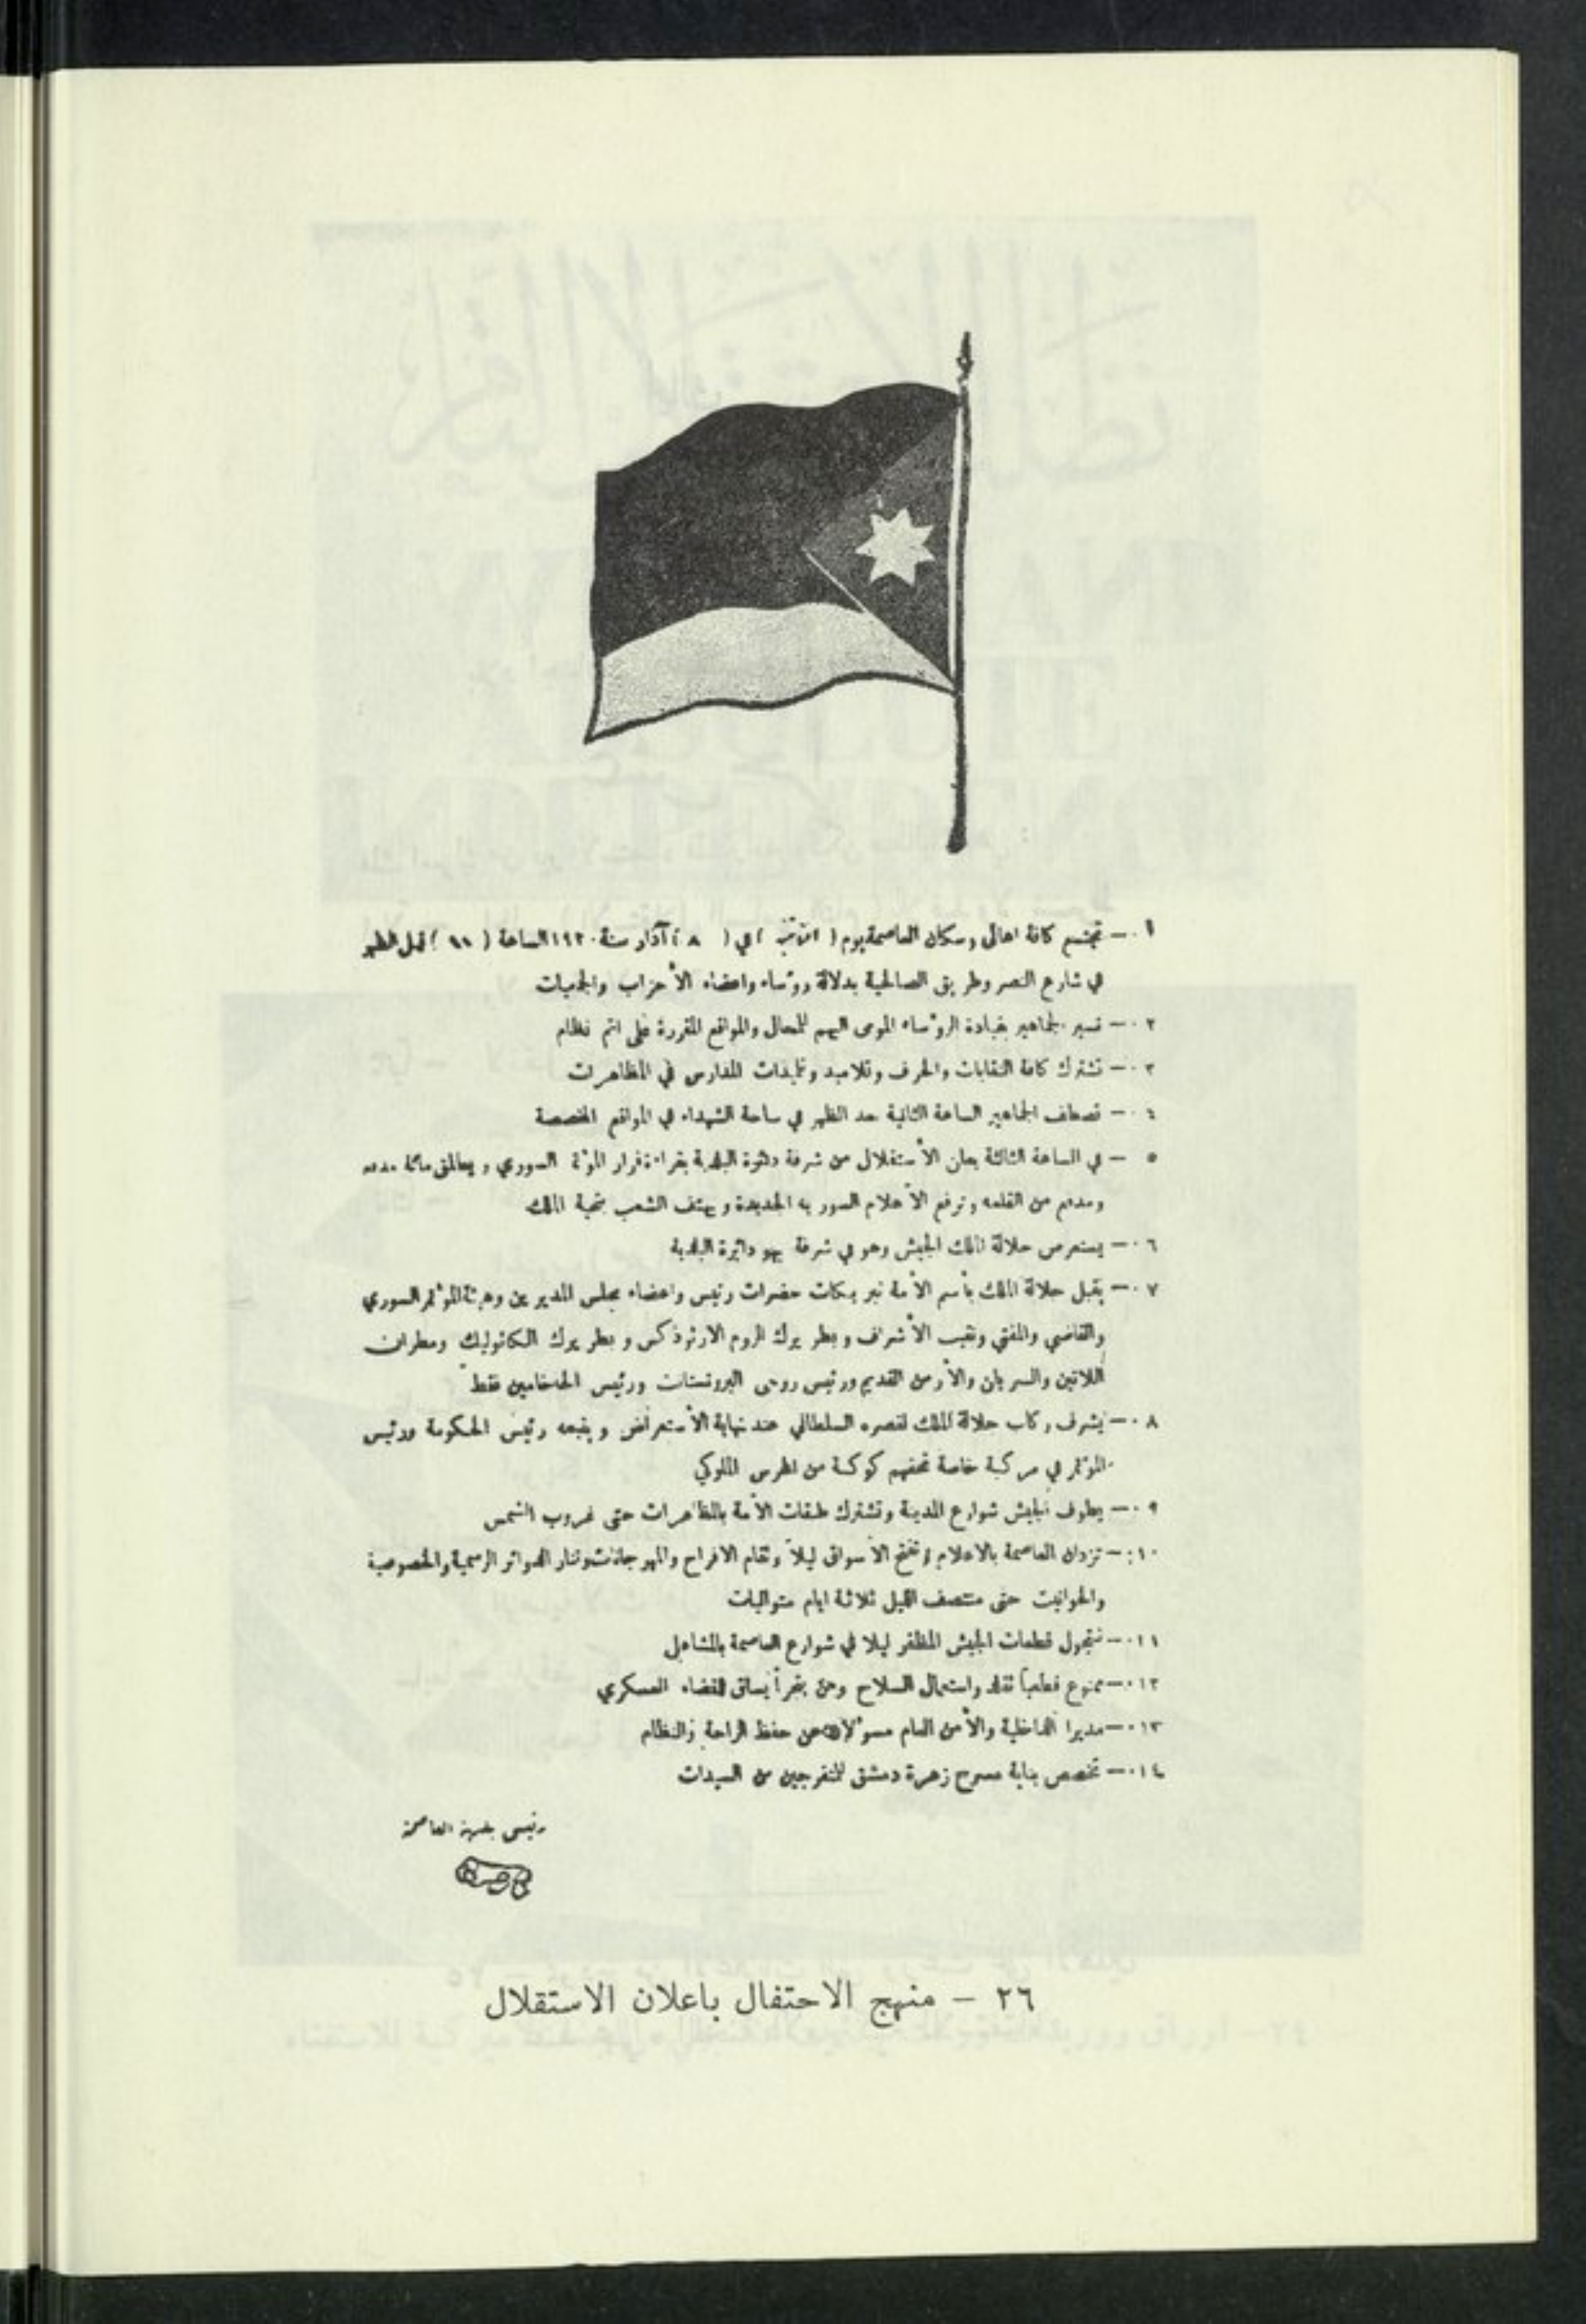 ١ — تجتمع كافة اهالي وسكان العاصمة يوم ( اثنين ) في ( ٨ ) آذار سنة ١٩٢٠ الساعة ( ١١ ) قبل الظهر
في شارع النصر وطريق الصالحية بدلالة رؤساء واعضاء الأحزاب والجمعيات
٢ — تسير الجماهير بقيادة الرؤساء الموى اليهم للمحال والمواقع المقررة على اتم نظام
٣ — تشترك كافة النقابات والحرف وتلاميذ وتلميذات المدارس في المظاهرات
٤ — تصطف الجماهير الساعة الثانية بعد الظهر في ساحة الشهداء في المواقع المخصصة
٥ — في الساعة الثالثة يعلن الأستقلال من شرفة دائرة البلدية بقراءة قرار المؤتمر السوري ويطلق مائة مدفع
ومدفع من القلعه وترفع الأعلام السوريه الجديدة ويهتف الشعب بتحية الملك
٦ — يستعرض جلالة الملك الجيش وهو في شرفة بهو دائرة البلدية
٧ — يقبل جلالة الملك بأسم الأمة تبريكات حضرات رئيس واعضاء مجلس المديرين وهيئة المؤتمر السوري
والقاضي والمفتي ونقيب الأشراف وبطريرك الروم الارثوذكس وبطريرك الكاثوليك ومطران
اللاتين والسريان والأرمن القديم ورئيس روحي البروتستانت ورئيس الحاخامين فقط
٨ — يشرف ركاب جلالة الملك لقصره السلطاني عند نهاية الأستعراض ويتبعه رئيس الحكومة ورئيس
المؤتمر في مركبة خاصة تحفهم كوكبة من الحرس الملوكي
٩ — يطوف الجيش شوارع المدينة وتشترك طبقات الأمة بالمظاهرات حتى غروب الشمس
١٠ — تزدان العاصمة بالاعلام وتفتح الأسواق ليلاً وتقام الافراح والمهرجانات وتنار الدوائر الرسمية والخصوصية
والحوانيت حتى منتصف الليل ثلاثة ايام متواليات
١١ — تتجول قطعات الجيش المظفر ليلا في شوارع العاصمة بالمشاعل
١٢ — ممنوع قطعياً نقل واستعمال السلاح ومن يتجرأ يساق للقضاء العسكري
١٣ — مديرا الداخلية والأمن العام مسؤلان عن حفظ الراحة والنظام
١٤ — تخصص بناية مسرح زهرة دمشق للمتفرجين من السيدات
رئيس بلدية العاصمة
٢٦ – منهج الاحتفال باعلان الاستقلال